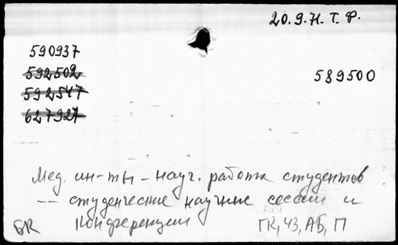 20.9.71. Т. Р.
590937
592502
589500
592547
627927
Мед. ин-ты – науч. работа студентов
–– студенческие научные сессии и
БК конференции ГК, ЧЗ, АБ, П